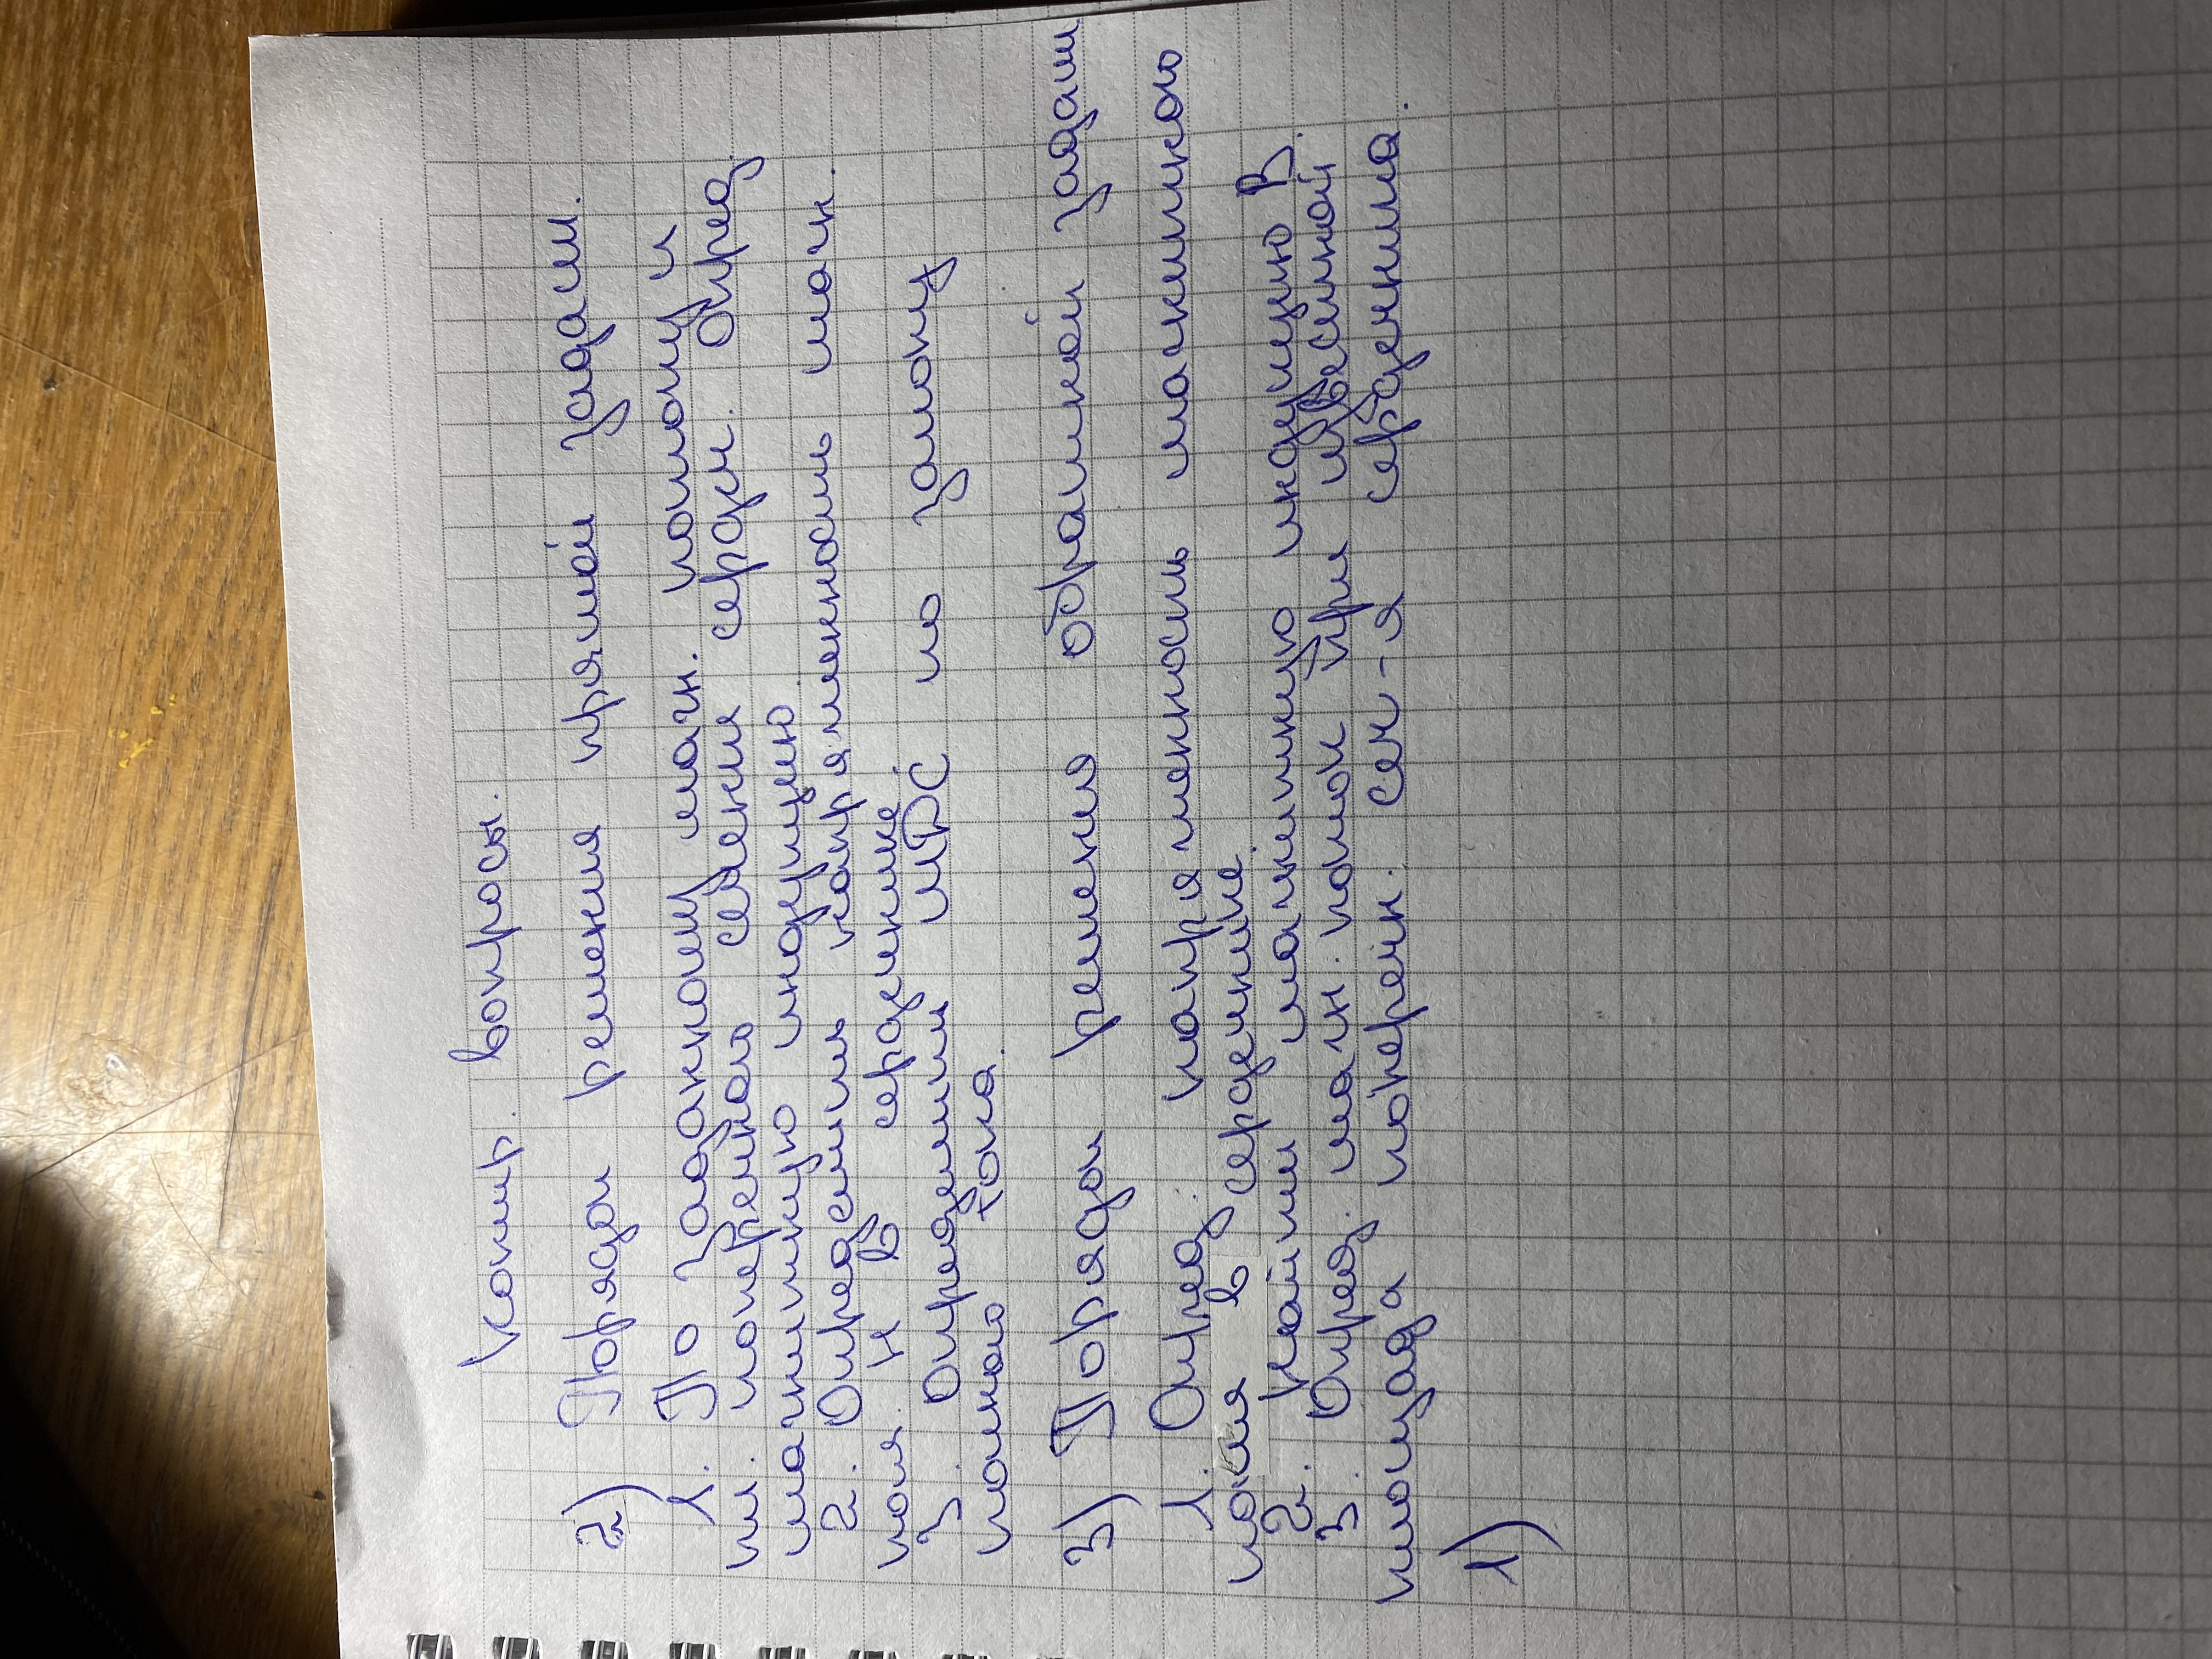 Контр. вопросы.
2) Порядок решения прямой задачи.
1. По заданному магн. потоку и
пл. поперечного сечения сердеч. опред.
магнитную индукцию.
2. Определить напряженность магн.
поля H в сердечнике
3. Определить МДС по закону
полного тока.
3) Порядок решения обратной задачи
1. Опред. напряженность магнитного
поля в сердечнике.
2. Найти магнитную индукцию B.
3. Опред. магн. поток при известной
площади попереч. сеч-я сердечника.
1)